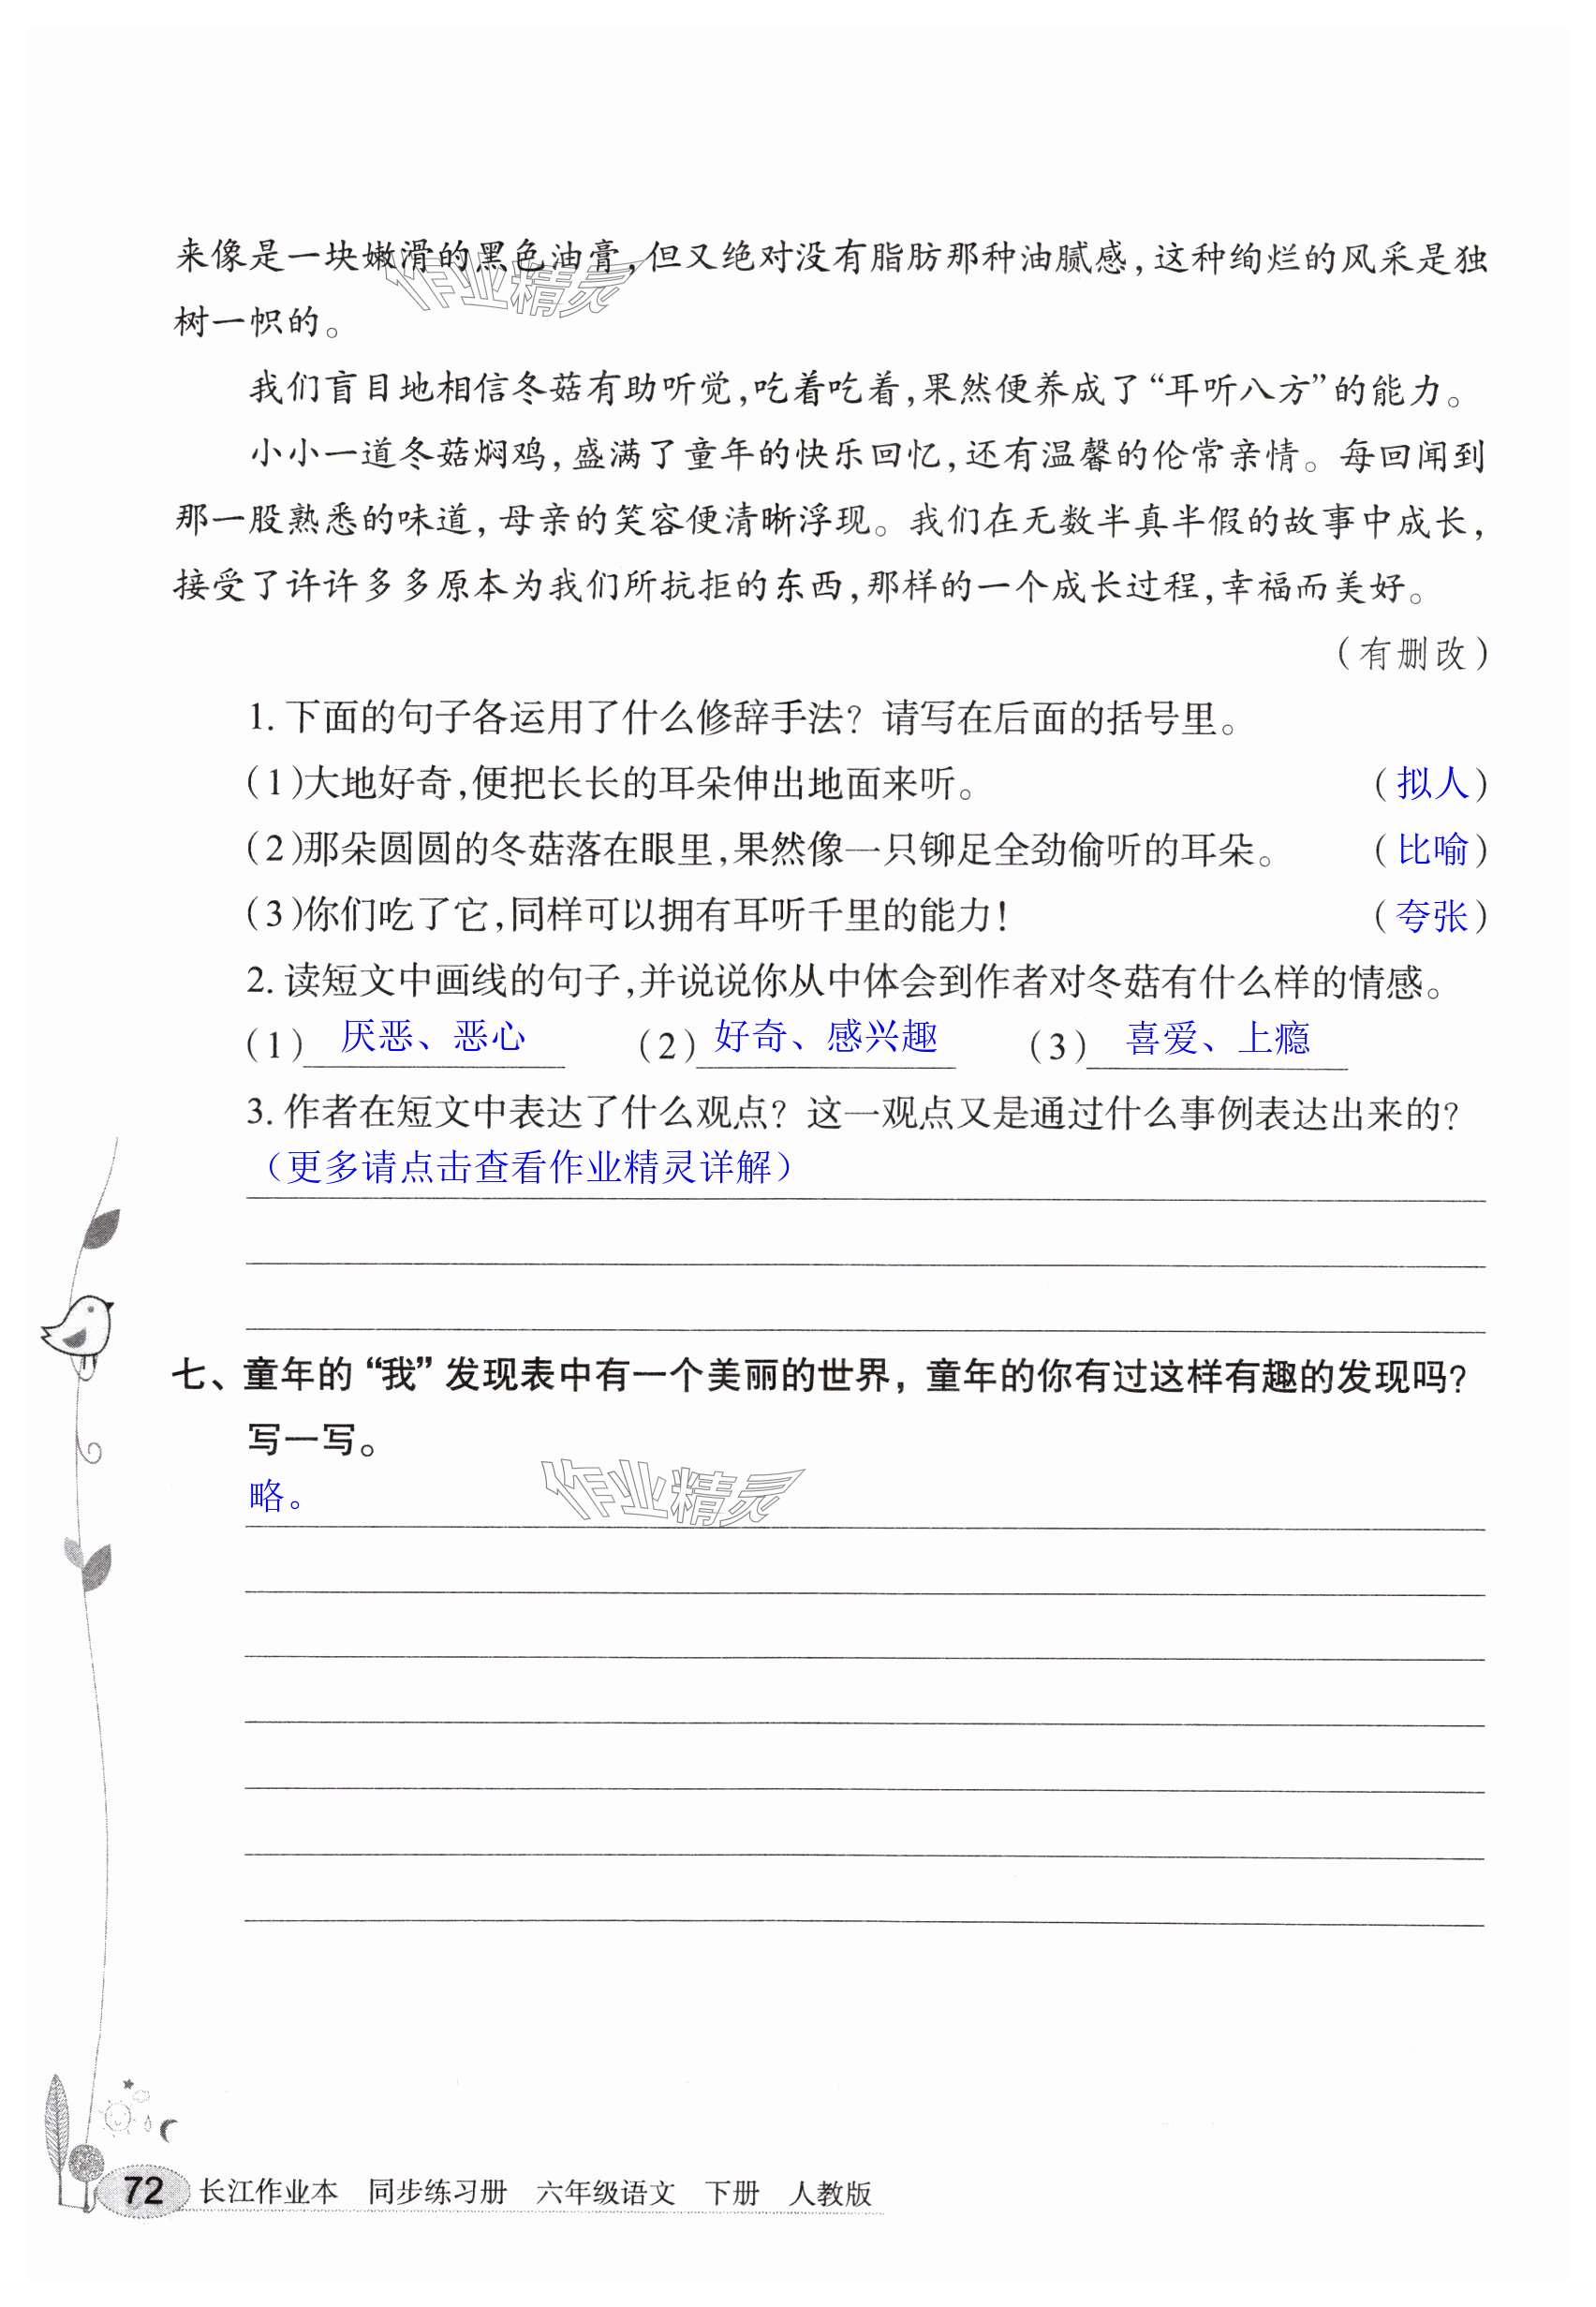 来像是一块嫩滑的黑色油膏，但又绝对没有脂肪那种油腻感，这种绚烂的风采是独
树一帜的。
我们盲目地相信冬菇有助听觉，吃着吃着，果然便养成了“耳听八方”的能力。
小小一道冬菇焖鸡，盛满了童年的快乐回忆，还有温馨的伦常亲情。每回闻到
那一股熟悉的味道，母亲的笑容便清晰浮现。我们在无数半真半假的故事中成长，
接受了许许多多原本为我们所抗拒的东西，那样的一个成长过程，幸福而美好。
（有删改）
1. 下面的句子各运用了什么修辞手法？请写在后面的括号里。
（1）大地好奇，便把长长的耳朵伸出地面来听。（拟人）
（2）那朵圆圆的冬菇落在眼里，果然像一只铆足全劲偷听的耳朵。（比喻）
（3）你们吃了它，同样可以拥有耳听千里的能力！（夸张）
2. 读短文中画线的句子，并说说你从中体会到作者对冬菇有什么样的情感。
（1）厌恶、恶心 （2）好奇、感兴趣 （3）喜爱、上瘾
3. 作者在短文中表达了什么观点？这一观点又是通过什么事例表达出来的？
（更多请点击查看作业精灵详解）
七、童年的“我”发现表中有一个美丽的世界，童年的你有过这样有趣的发现吗？
写一写。
作业精灵
略。
作业精灵
72 长江作业本 同步练习册 六年级语文 下册 人教版